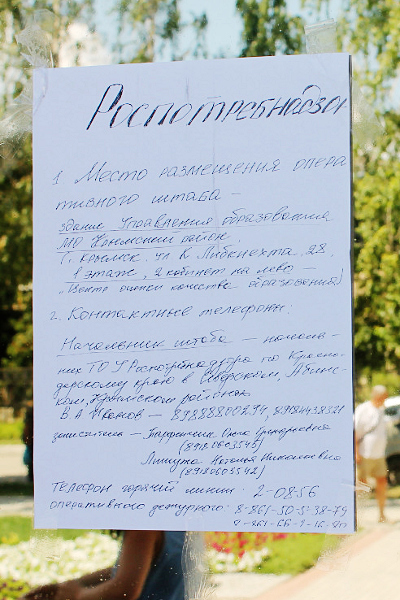 Роспотребнадзо
1 Место размещения опера
тивного штаба –
здание Управления образования
МО Крымский район.
г. Крымск. ул К. Либкнехта 28,
1 этаж, 2 кабинет на лево –
"Центр оценки качества образования)
2. Контактные телефоны:
Начальник штаба – началь-
ник ТО У Роспотребнадзора по Красно-
дарскому краю в Северском, Абинс-
ком, Крымском районах
В А – 89888800294,
заместители –
(89180603545)
Наталья Николаевна
(89180603542)
Телефон горячей линии: 2-08-56
оперативного дежурного: